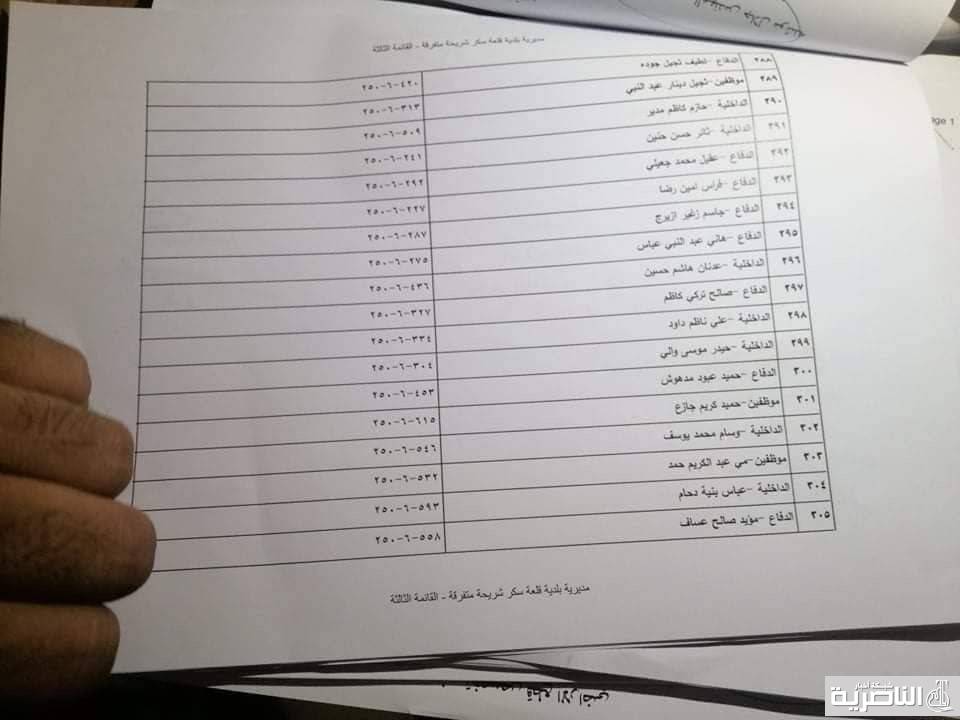 مديرية بلدية قلعة سكر شريحة متفرقة - القائمة الثالثة
٢٨٨ الدفاع -لطيف ثجيل جوده ٢٥٠-٦-٤٢٠
٢٨٩ موظفين-ثجيل دينار عبد النبي ٢٥٠-٦-٣١٣
٢٩٠ الداخلية -حازم كاظم مدير ٢٥٠-٦-٥٠٩
٢٩١ الداخلية -ثائر حسن حنين ٢٥٠-٦-٢٤١
٢٩٢ الدفاع -عقيل محمد جعيلي ٢٥٠-٦-٢٩٢
٢٩٣ الدفاع -فراس امين رضا ٢٥٠-٦-٢٢٧
٢٩٤ الدفاع -جاسم زغير ازيرج ٢٥٠-٦-٢٨٧
٢٩٥ الدفاع -هاني عبد النبي عباس ٢٥٠-٦-٢٧٥
٢٩٦ الداخلية -عدنان هاشم حسين ٢٥٠-٦-٤٣٦
٢٩٧ الدفاع -صالح تركي كاظم ٢٥٠-٦-٣٢٧
٢٩٨ الداخلية -علي ناظم داود ٢٥٠-٦-٣٣٤
٢٩٩ الداخلية -حيدر موسى والي ٢٥٠-٦-٣٠٤
٣٠٠ الدفاع -حميد عبود مدهوش ٢٥٠-٦-٤٥٣
٣٠١ موظفين-حميد كريم جازع ٢٥٠-٦-٦١٥
٣٠٢ الداخلية -وسام محمد يوسف ٢٥٠-٦-٥٤٦
٣٠٣ موظفين-مي عبد الكريم حمد ٢٥٠-٦-٥٣٢
٣٠٤ الداخلية -عباس بنية دحام ٢٥٠-٦-٥٩٣
٣٠٥ الدفاع -مؤيد صالح عساف ٢٥٠-٦-٥٥٨
مديرية بلدية قلعة سكر شريحة متفرقة - القائمة الثالثة
قطع الاراضي
شبكة أخبار
الناصرية